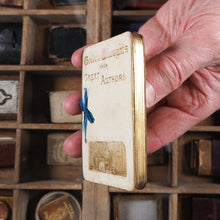 Golden Thoughts
FROM
GREAT AUTHORS